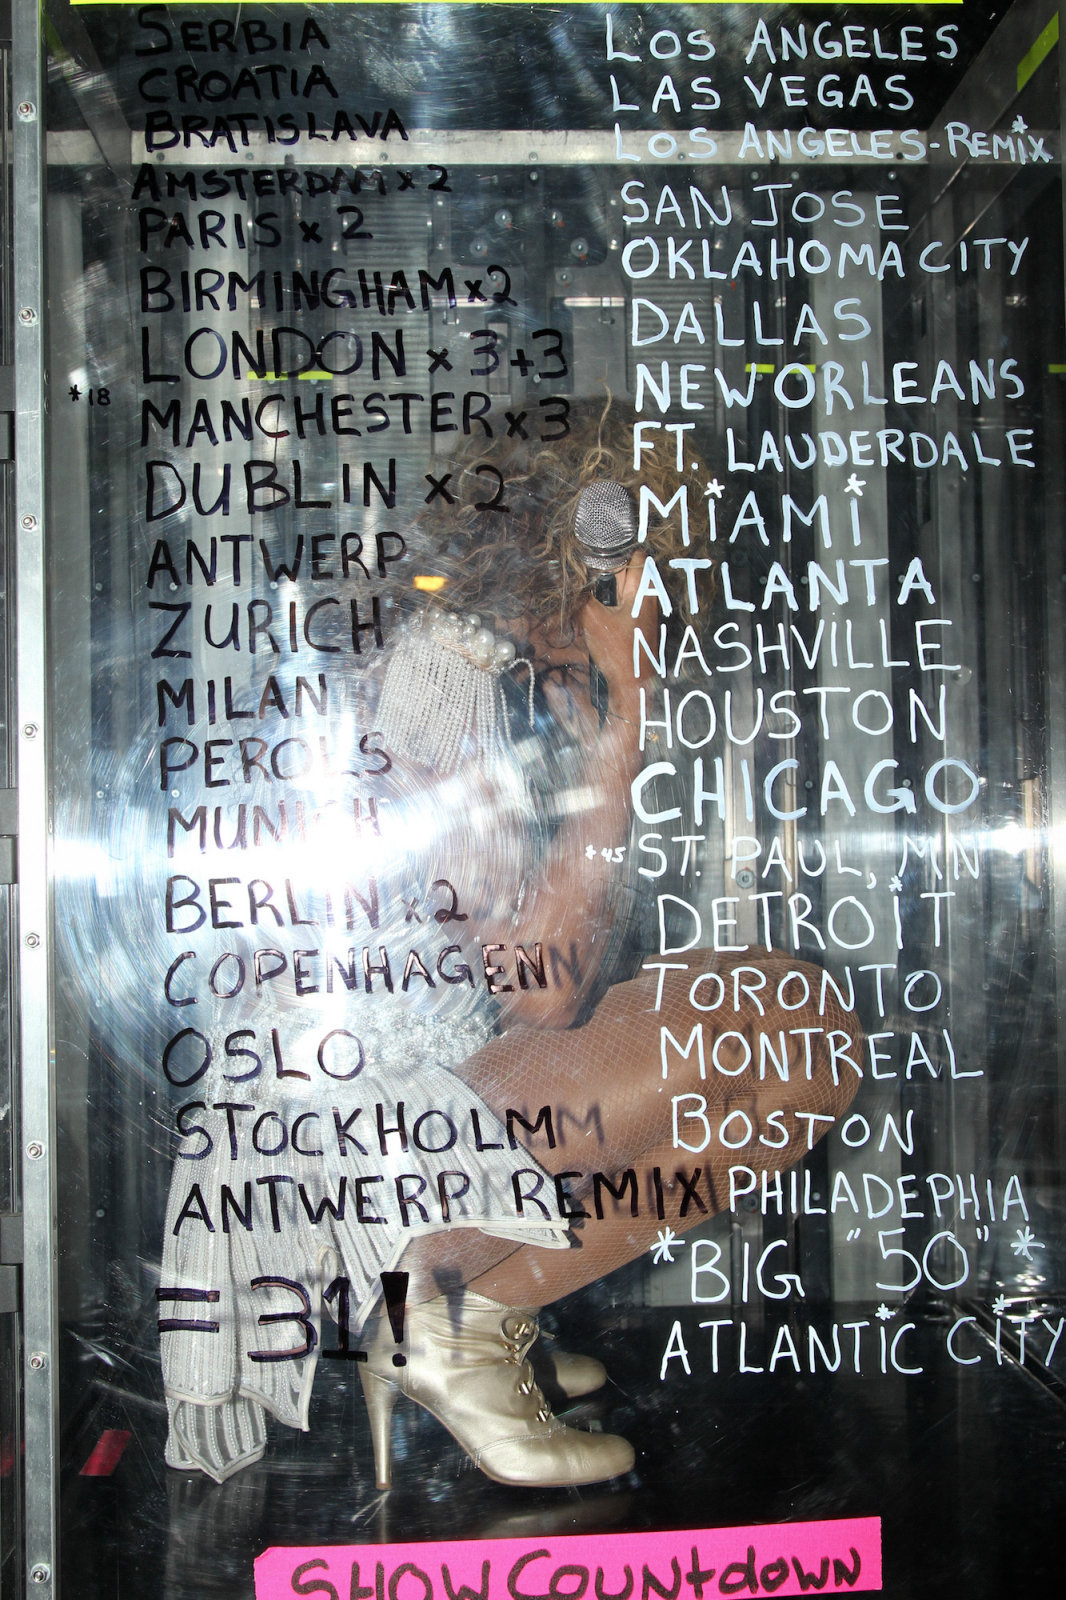 SERBIA
CROATIA
BRATISLAVA
AMSTERDAM x 2
PARIS x 2
BIRMINGHAM x2
LONDON x 3+3
*18
MANCHESTER x 3
DUBLIN x 2
ANTWERP
ZURICH
MILAN
PEROLS
MUNICH
BERLIN x2
COPENHAGEN
OSLO
STOCKHOLM
ANTWERP REMIX
= 31!
LOS ANGELES
LAS VEGAS
LOS ANGELES-REMiX
SAN JOSE
OKLAHOMA CITY
DALLAS
NEW ORLEANS
FT. LAUDERDALE
MiAMi
ATLANTA
NASHVILLE
HOUSTON
CHICAGO
*45 ST. PAUL, MN
DETROiT
TORONTO
MONTREAL
BOSTON
PHILADEPHIA
*BIG "50" *
ATLANTiC CiTY
SHOW COUNtdowN